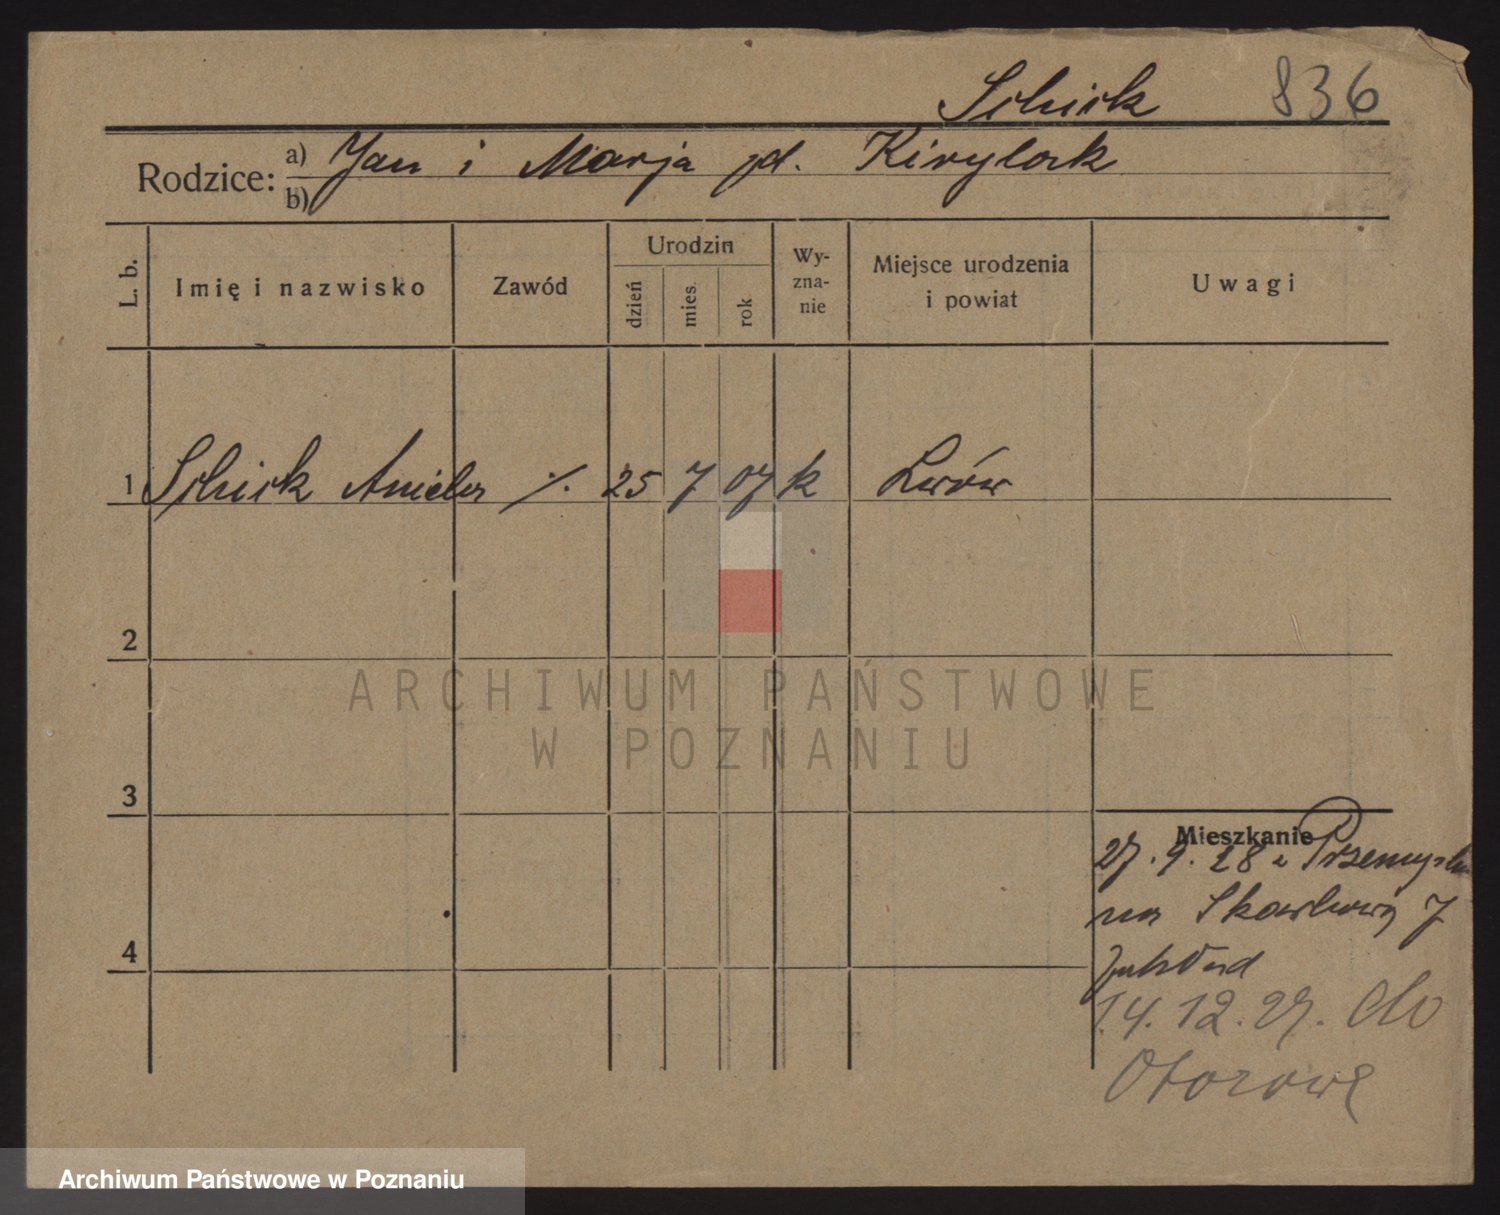 Schick 836
Rodzice: a) Jan i Marja pd. Kirylock
b)
L. b. Imię i nazwisko Zawód Urodzin dzień mies. rok Wyznanie Miejsce urodzenia i powiat Uwagi
1 Schick Aniela ./. 25 7 07 k Lwów
2
ARCHIWUM PAŃSTWOWE
W POZNANIU
3
Mieszkanie
27. 9. 28 z Przemyśla
na Skarbową 7
14. 12. 29. do
Otorowa
4
Archiwum Państwowe w Poznaniu